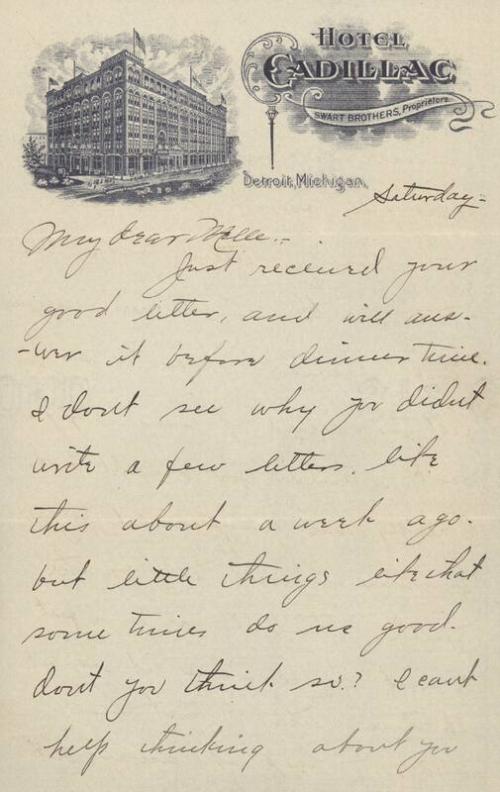 HOTEL
CADILLAC
SWART BROTHERS, Proprietors.
Detroit, Michigan,
Saturday-
My dear
Just received your
good letter, and will ans-
-wer it before dinner time.
I dont see why you didnt
write a few letters. like
this about a week ago.
but little things like that
some times do us good.
dont you think so.? I cant
help thinking about you